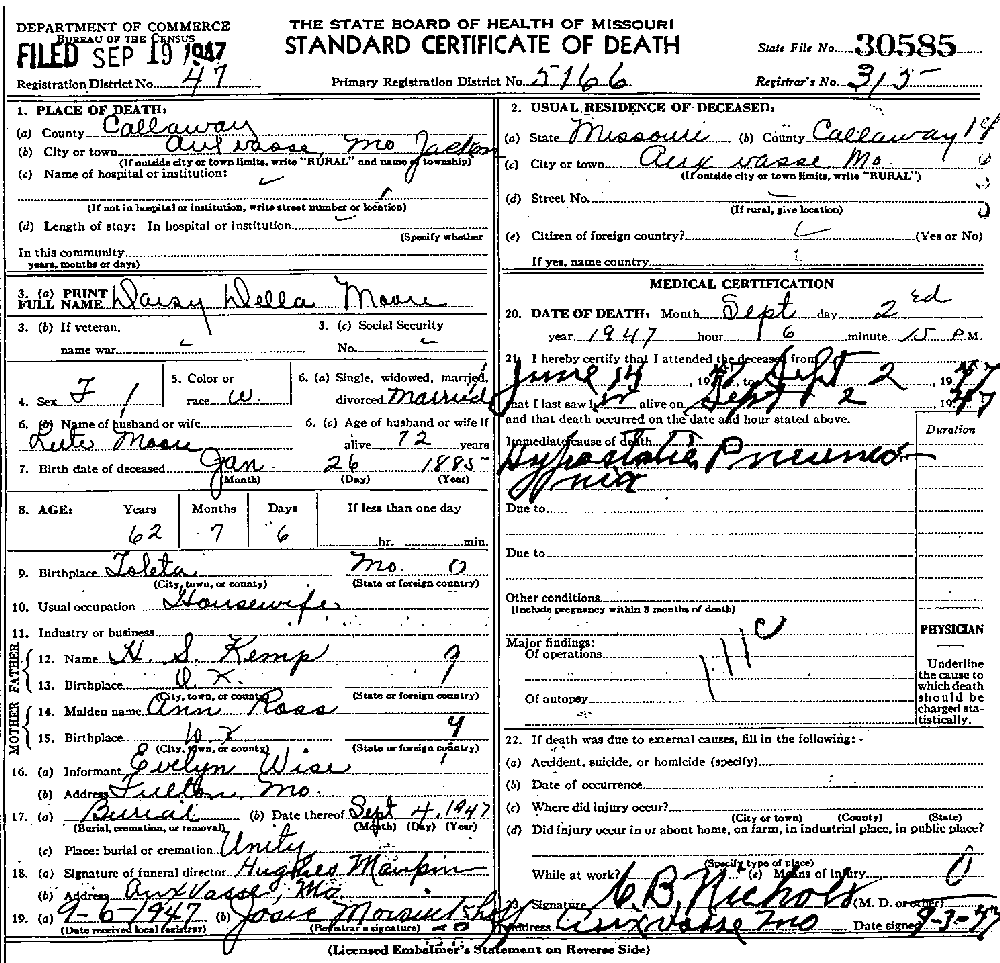 DEPARTMENT OF COMMERCE
BUREAU OF THE CENSUS
FILED SEP 19 1947
Registration District No. 47
THE STATE BOARD OF HEALTH OF MISSOURI
STANDARD CERTIFICATE OF DEATH
Primary Registration District No. 5166
State File No. 30585
Registrar's No. 315
1. PLACE OF DEATH:
(a) County Callaway
(b) City or town Auxvasse, Mo Jackson
(If outside city or town limits, write "RURAL" and name of township)
(c) Name of hospital or institution:
(If not in hospital or institution, write street number or location)
(d) Length of stay: In hospital or institution
(Specify whether
In this community
years, months or days)
3. (a) PRINT FULL NAME Daisy Della Moore
3. (b) If veteran, name war
3. (c) Social Security No.
4. Sex F
5. Color or race W.
6. (a) Single, widowed, married, divorced Married
6. (b) Name of husband or wife Moore
6. (c) Age of husband or wife if alive 72 years
7. Birth date of deceased Jan. 26 1885
(Month) (Day) (Year)
8. AGE: Years Months Days If less than one day
62 7 6 hr. min.
9. Birthplace Mo. 0
(City, town, or county) (State or foreign country)
10. Usual occupation Housewife
11. Industry or business
FATHER
12. Name H. S. Kemp
13. Birthplace D.K.
(City, town, or county) (State or foreign country)
MOTHER
14. Maiden name Ann Ross
15. Birthplace D.K. 9
(City, town, or county) (State or foreign country)
16. (a) Informant Evelyn Wise
(b) Address Fulton Mo.
17. (a) Burial (b) Date thereof Sept 4, 1947
(Burial, cremation, or removal) (Month) (Day) (Year)
(c) Place: burial or cremation Unity
18. (a) Signature of funeral director Hughes Maupin
(b) Address Auxvasse, Mo
19. (a) 9-6-1947 (b) Josie
(Date received local registrar) (Registrar's signature)
2. USUAL RESIDENCE OF DECEASED:
(a) State Missouri (b) County Callaway 14
(c) City or town Auxvasse Mo.
(If outside city or town limits, write "RURAL")
(d) Street No.
(If rural, give location)
(e) Citizen of foreign country? (Yes or No)
If yes, name country
MEDICAL CERTIFICATION
20. DATE OF DEATH: Month Sept day 2ed
year 1947 hour 6 minute 15 P.M.
21. I hereby certify that I attended the deceased from
June 14, 1947, to Sept 2, 1947
that I last saw alive on Sept 2 1947
and that death occurred on the date and hour stated above.
Duration
Immediate cause of death
Hypostatic Pneumonia
Due to
Due to
Other conditions
(Include pregnancy within 3 months of death)
Major findings:
Of operations
Of autopsy
PHYSICIAN
Underline the cause to which death should be charged statistically.
22. If death was due to external causes, fill in the following:
(a) Accident, suicide, or homicide (specify)
(b) Date of occurrence
(c) Where did injury occur?
(City or town) (County) (State)
(d) Did injury occur in or about home, on farm, in industrial place, in public place?
(Specify type of place)
While at work? (e) Means of injury 0
23. Signature B. Nichols (M. D. or other)
Address Auxvasse Mo Date signed 9-3-47
(Licensed Embalmer's Statement on Reverse Side)